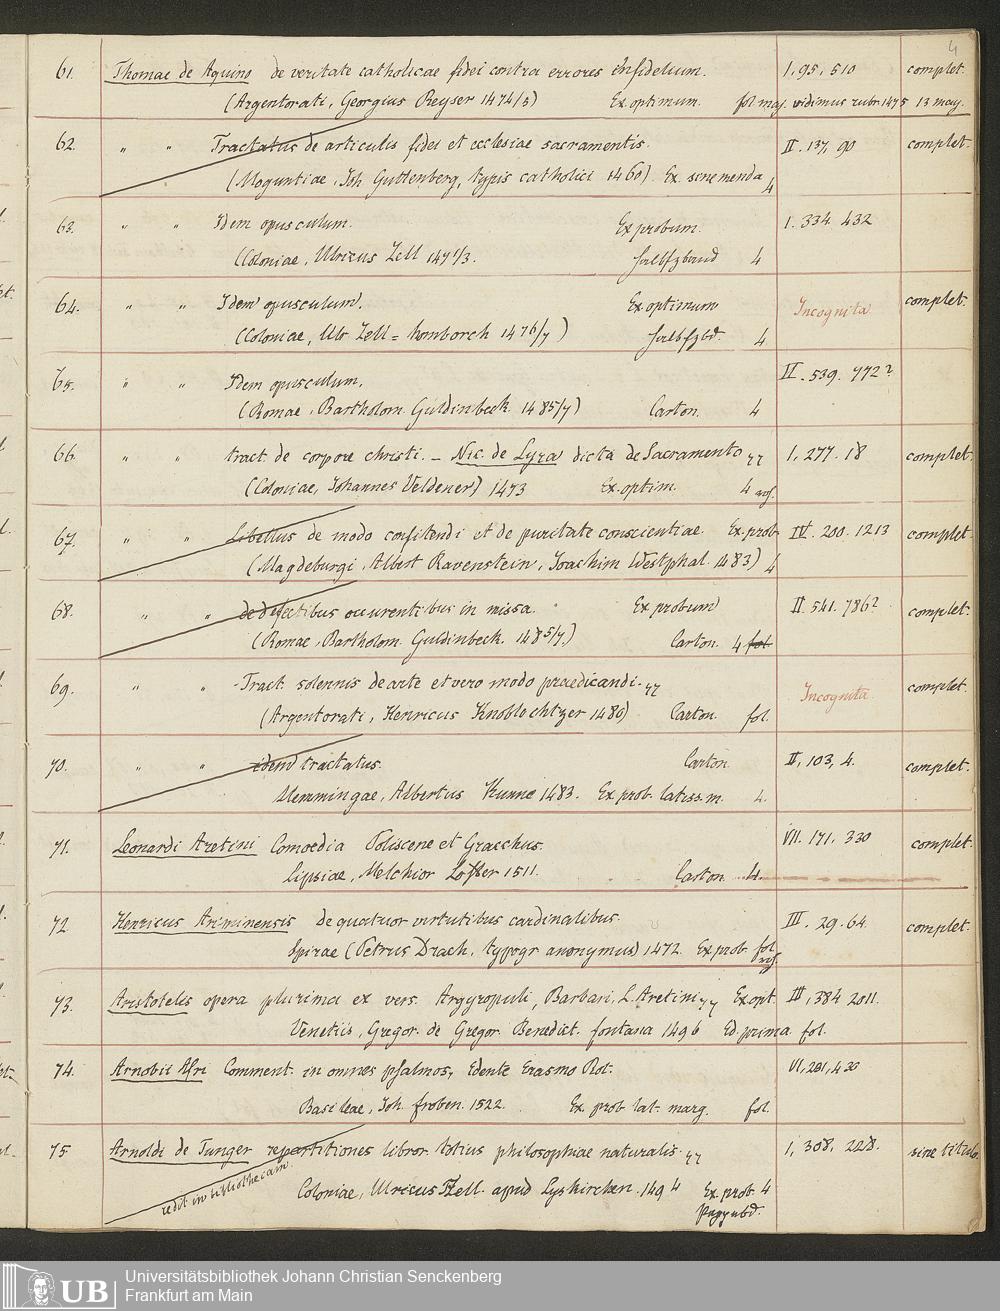 4
61. Thomae de Aquino de veritate catholicae fidei contra errores infidelium. I, 95, 510 complet.
(Argentorati, Georgius Reyser 1474/5) Ex. optimum. fol maj. vidimus rubr. 1475 13 may.
62. " " Tractatus de articulis fidei et ecclesiae sacramentis. II. 137, 90 complet.
(Moguntiae, Joh Guttenberg, typis catholici 1460). Ex. sine menda 4
63. " " Idem opusculum. Ex probum. I. 334. 432
(Coloniae, Ulricus Zell 1471/3. halbfzband 4
64. " " Idem opusculum. Ex optimum Incognita complet.
(Coloniae, Ulr Zell = homborch 1476/7) halbfzbd. 4
65. " " Idem opusculum. II. 539. 772?
(Romae, Bartholom. Guldinbeck. 1485/7) Carton. 4
66. " " tract. de corpore christi. – Nic. de Lyra dicta de Sacramento I, 277. 18 complet.
(Coloniae, Johannes Veldener) 1473 Ex. optim. 4
67. " " Libellus de modo confitendi et de puritate conscientiae. Ex. prob. IV. 200. 1213 complet.
(Magdeburgi, Albert Ravenstein, Joachim Westphal. 1483) 4
68. " " de defectibus occurentibus in missa. Ex probum II. 541. 786? complet.
(Romae, Bartholom. Guldinbeck. 1485/7.) Carton. 4 fol.
69. " " Tract. solennis de arte et vero modo praedicandi. Incognita complet.
(Argentorati, Henricus Knoblochtzer 1480) Carton. fol.
70. " " idem tractatus. Carton. II, 103, 4. complet.
Memmingae, Albertus Kunne 1483. Ex prob. latiss. m. 4.
71. Leonardi Aretini Comoedia Poliscene et Gracchus. VII. 171, 330 complet.
Lipsiae, Melchior Lotter 1511. Carton 4.
72. Henricus Ariminensis de quatuor virtutibus cardinalibus. III. 29. 64. complet.
Spirae (Petrus Drach, typogr anonymus) 1472. Ex prob. fol
73. Aristotelis opera plurima ex vers. Argyropuli, Barbari, L. Aretini Ex opt. III, 384 2011.
Venetiis, Gregor. de Gregor. Benedict. fontana 1496 Ed. prima fol.
74. Arnobii Afri Comment. in omnes psalmos, Edente Erasmo Rot. VI, 281, 430
Basileae, Joh. froben. 1522. Ex. prob lat. marg. fol.
75. Arnoldi de Tunger repartitiones libror. totius philosophiae naturalis. I, 308, 228. sine titulo
redit in bibliothecam. Coloniae, Ulricus Zell. apud Lyskirchen. 1494 Ex. prob. 4
Pappabd.
Universitätsbibliothek Johann Christian Senckenberg
Frankfurt am Main
UB